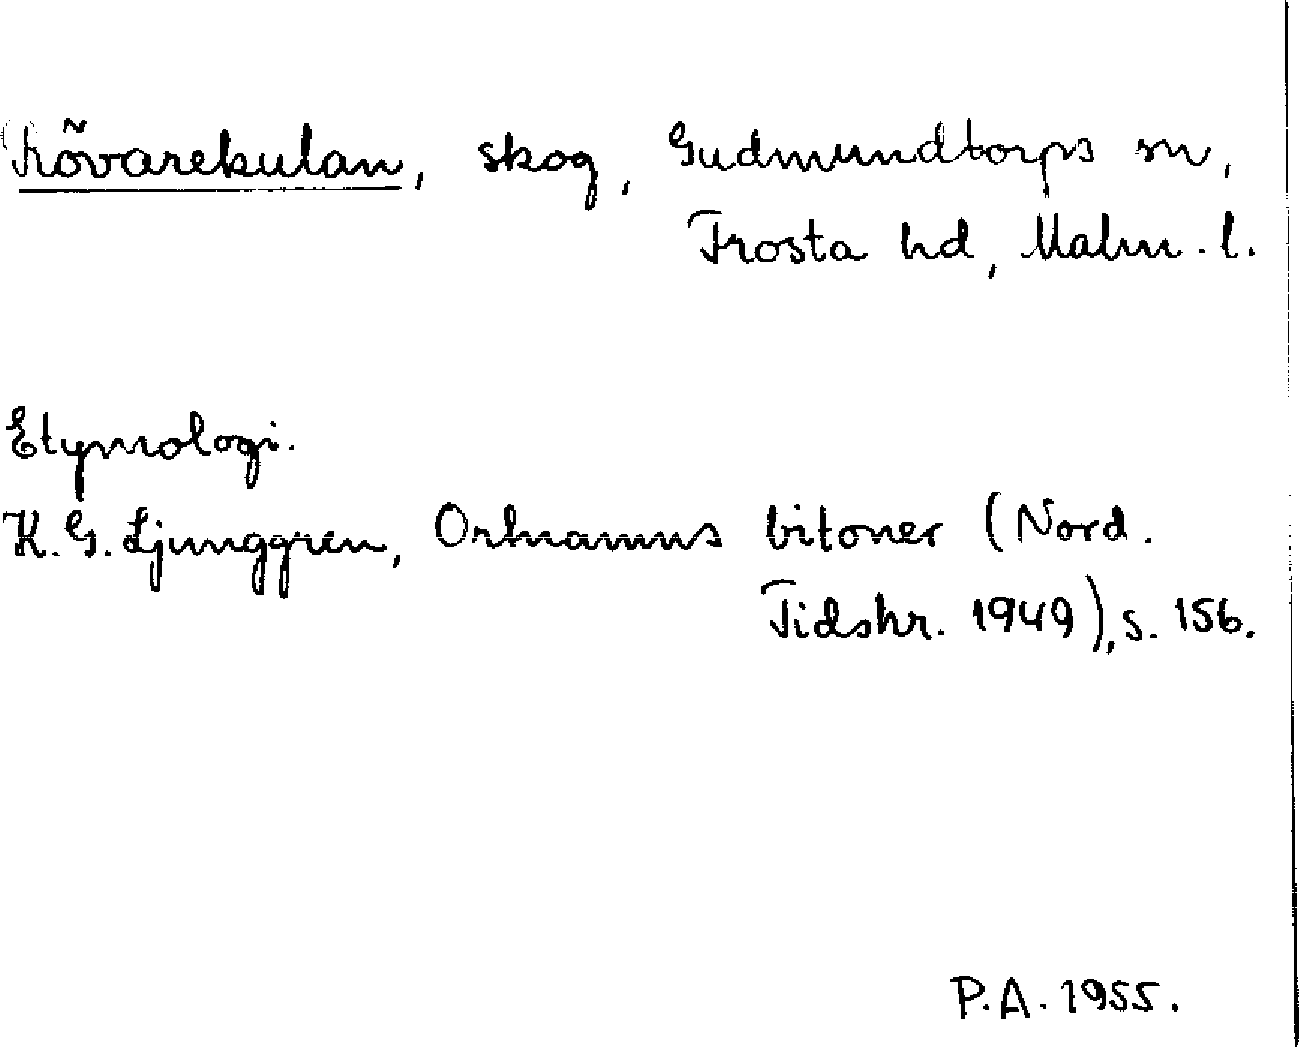 Rövarekulan, skog, Gudmundtorps sn,
Frosta hd, Malm. l.
Etymologi.
K. G. Ljunggren, Ortnamns bitoner (Nord.
Tidskr. 1949), s. 156.
P.A. 1955.